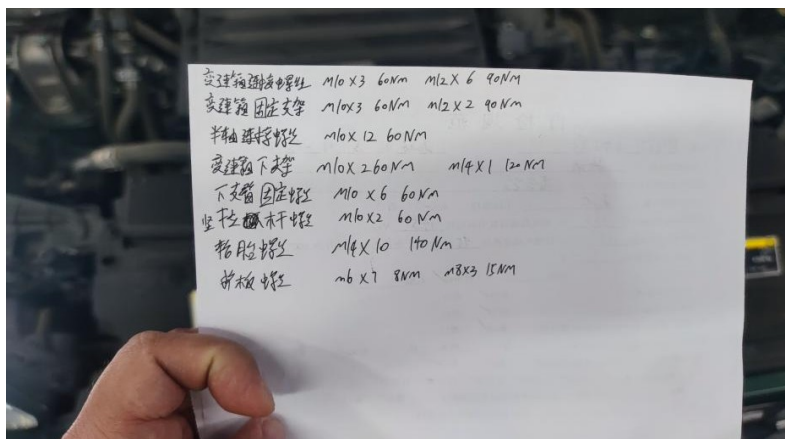 变速箱连接螺丝 M10X3 60Nm M12X6 90NM
变速箱固定支架 M10X3 60Nm M12X2 90NM
半轴连接螺丝 M10X12 60NM
变速箱下支架 M10X2 60NM M14X1 120NM
下支臂固定螺丝 M10X6 60NM
竖拉杆螺丝 M10X2 60NM
轮胎螺丝 M14X10 140NM
护板螺丝 M6X7 8NM M8X3 15NM